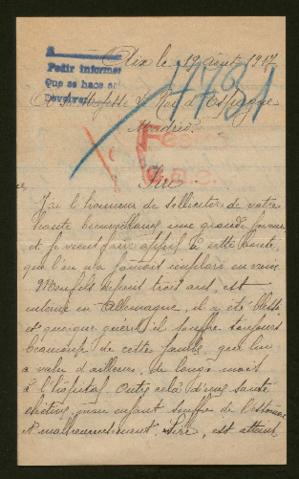 Aix le 19 Août 1917
A
Pedir informes
Que se hace en
Devolver
4731
A Sa Majesté le Roi d'Espagne
Madrid
Sire
J'ai l'honneur de solliciter de votre
haute bienveillance une grande faveur
et je viens faire appel à cette bonté,
que l'on n'a jamais implorée en vain.
Mon fils depuis trois ans, est
interné en Allemagne, il a été blessé
et quoique guéri il souffre toujours
beaucoup de cette jambe que lui
a valu d'ailleurs, de longs mois
à l'hôpital. Outre cela d'une santé
chétive, mon enfant souffre de l'estomac
et malheureusement Sire, est atteint